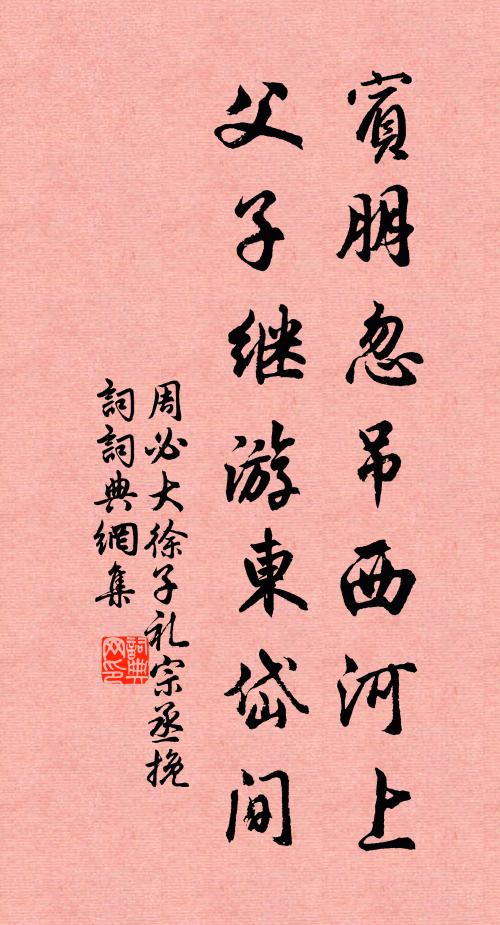 賓朋忽吊西河上
父子继游東岱间
周必大徐子礼宗丞挽
詞詞典網集
詞典网印